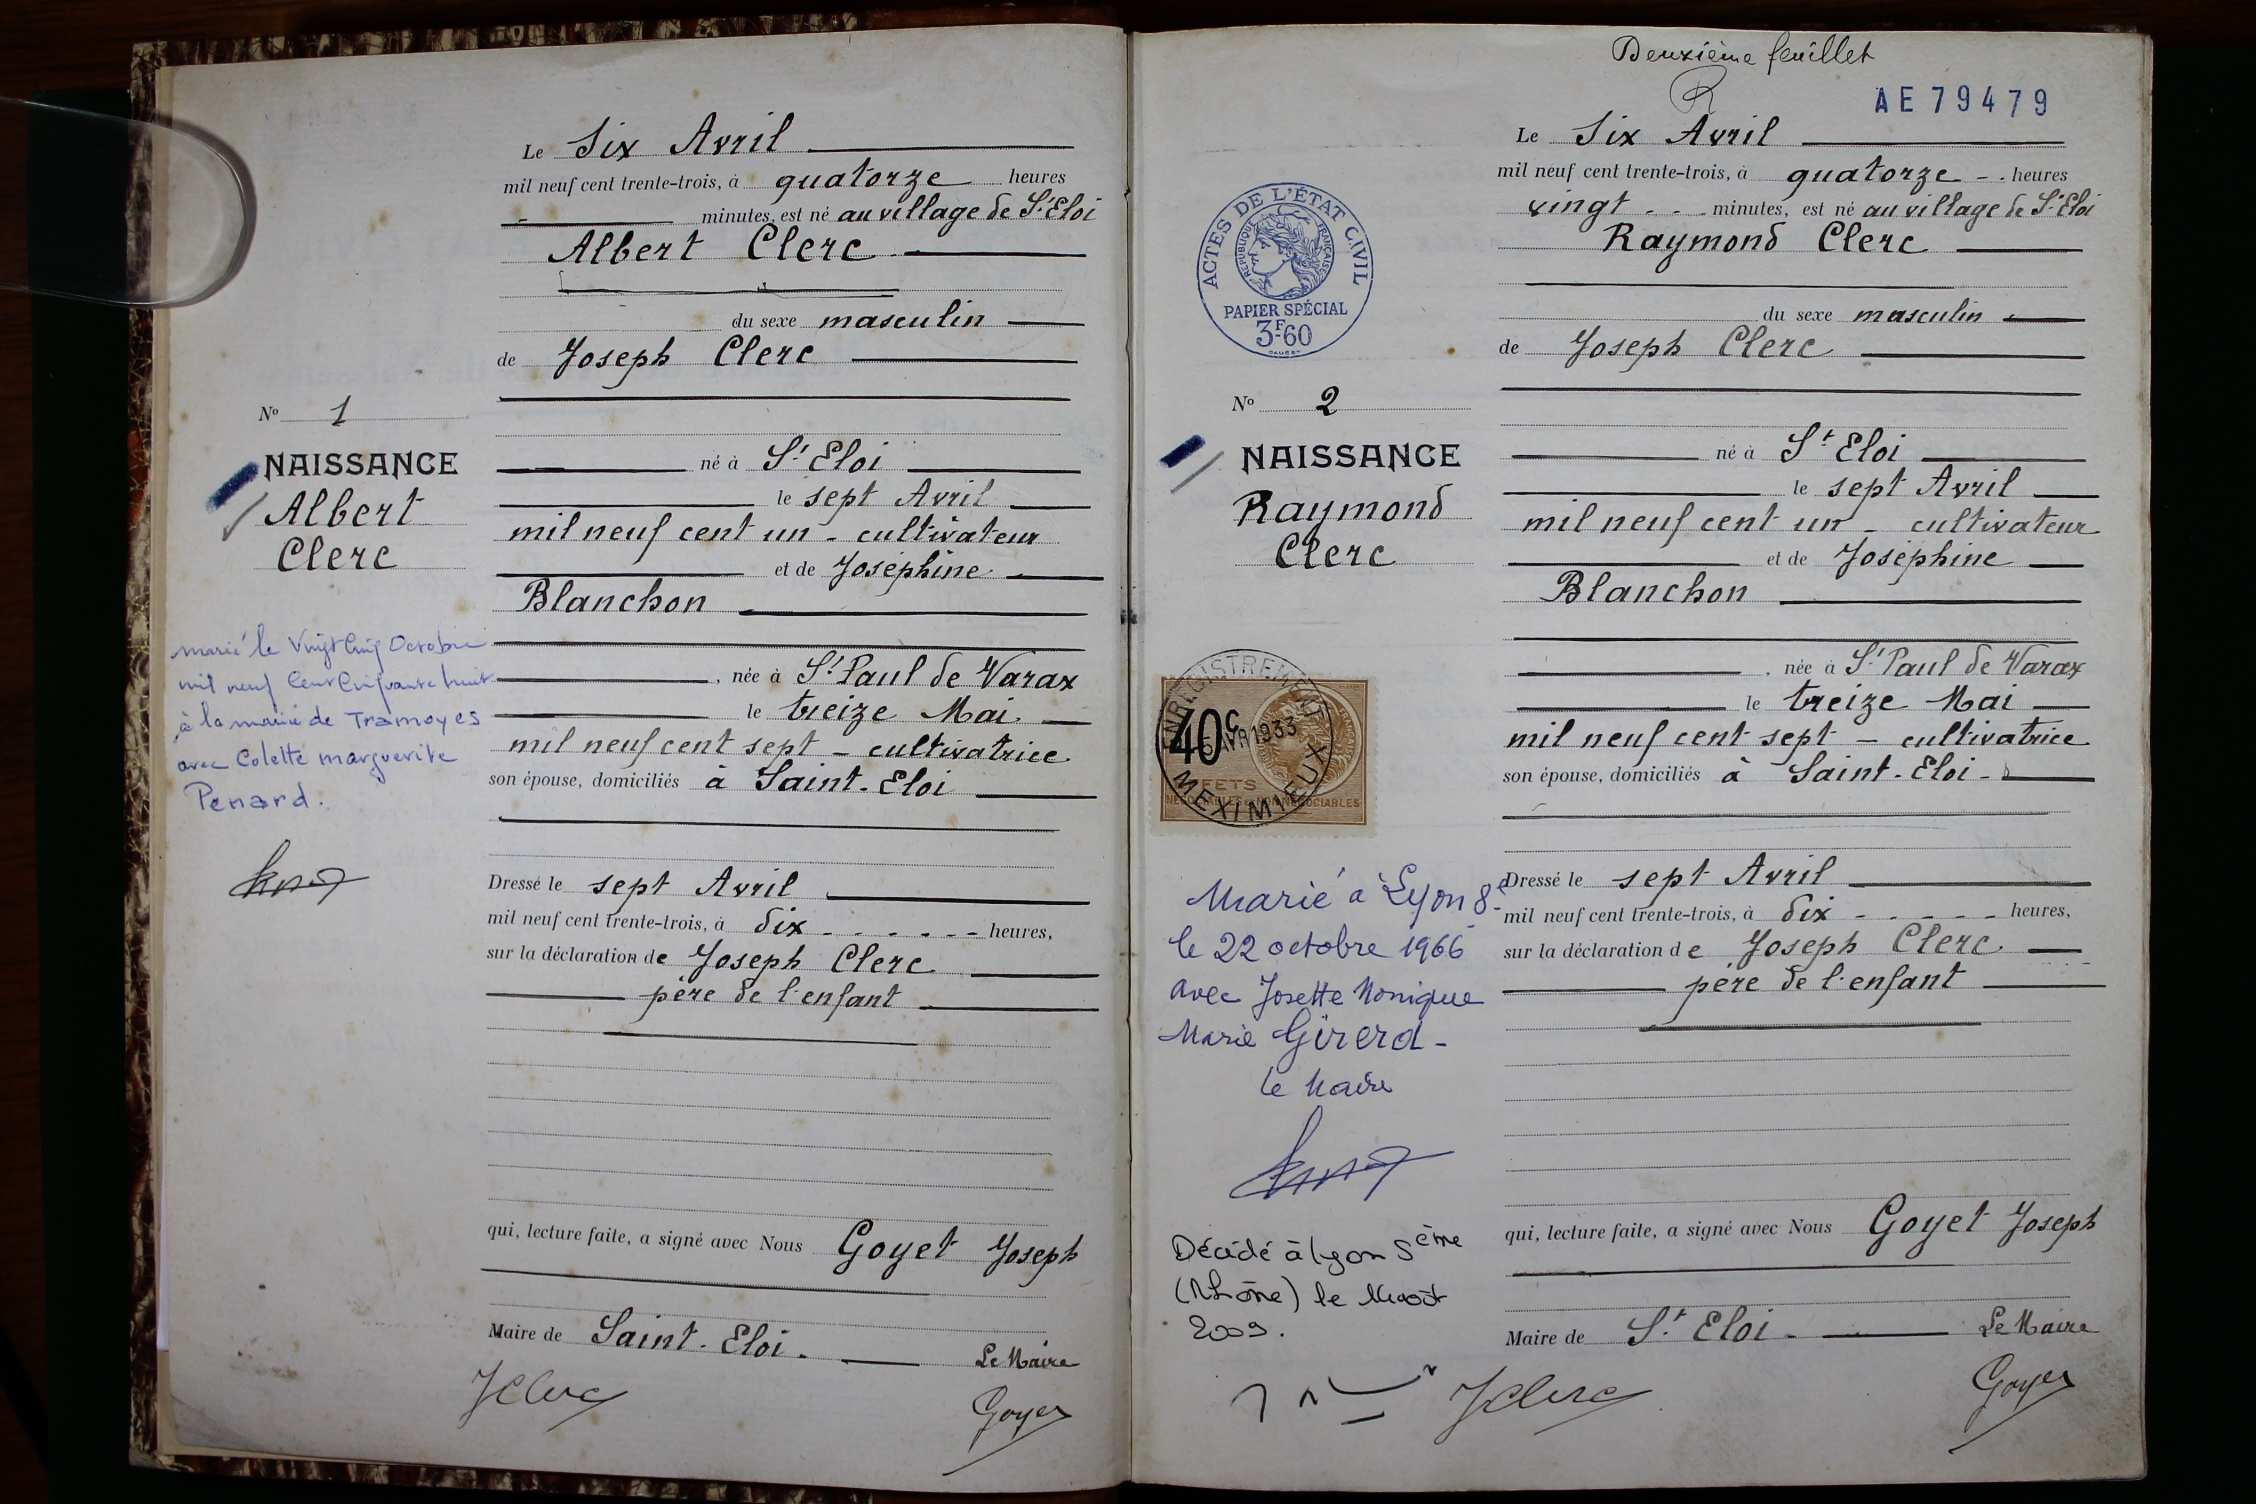 Le Six Avril
mil neuf cent trente-trois, à quatorze heures
- minutes, est né au village de St Eloi
Albert Clerc
du sexe masculin
de Joseph Clerc
No 1
NAISSANCE
Albert
Clerc
né à St Eloi
le sept Avril
mil neuf cent un - cultivateur
et de Joséphine
Blanchon
, née à St Paul de Varax
le treize Mai
mil neuf cent sept - cultivatrice
son épouse, domiciliés à Saint-Eloi
marié le Vingt Cinq Octobre
mil neuf Cent Cinquante huit
à la mairie de Tramoyes
avec Colette marguerite
Penard.
Dressé le sept Avril
mil neuf cent trente-trois, à dix - - - - - - heures,
sur la déclaration de Joseph Clerc
père de l'enfant
qui, lecture faite, a signé avec Nous Goyet Joseph
Maire de Saint-Eloi.
Le Maire
JClerc
Goyet
Deuxième feuillet
AE79479
Le Six Avril
mil neuf cent trente-trois, à quatorze - . heures
vingt - - minutes, est né au village de St Eloi
Raymond Clerc
du sexe masculin
de Joseph Clerc
ACTES DE L'ÉTAT CIVIL
RÉPUBLIQUE FRANÇAISE
PAPIER SPÉCIAL
3F.60
No 2
NAISSANCE
Raymond
Clerc
né à St Eloi
le sept Avril
mil neuf cent un - cultivateur
et de Joséphine
Blanchon
, née à St Paul de Varax
le treize Mai
mil neuf cent sept - cultivatrice
son épouse, domiciliés à Saint-Eloi -
ENREGISTREMENT
40c
AVR 1933
MEXIMIEUX
Marié à Lyon 8e
le 22 octobre 1966
avec Josette Monique
Marie Girerd -
le Maire
Décédé à Lyon 5ème
(Rhône) le août
2009.
Dressé le sept Avril
mil neuf cent trente-trois, à dix - - - - - heures,
sur la déclaration de Joseph Clerc
père de l'enfant
qui, lecture faite, a signé avec Nous Goyet Joseph
Maire de St Eloi -
Le Maire
JClerc
Goyet